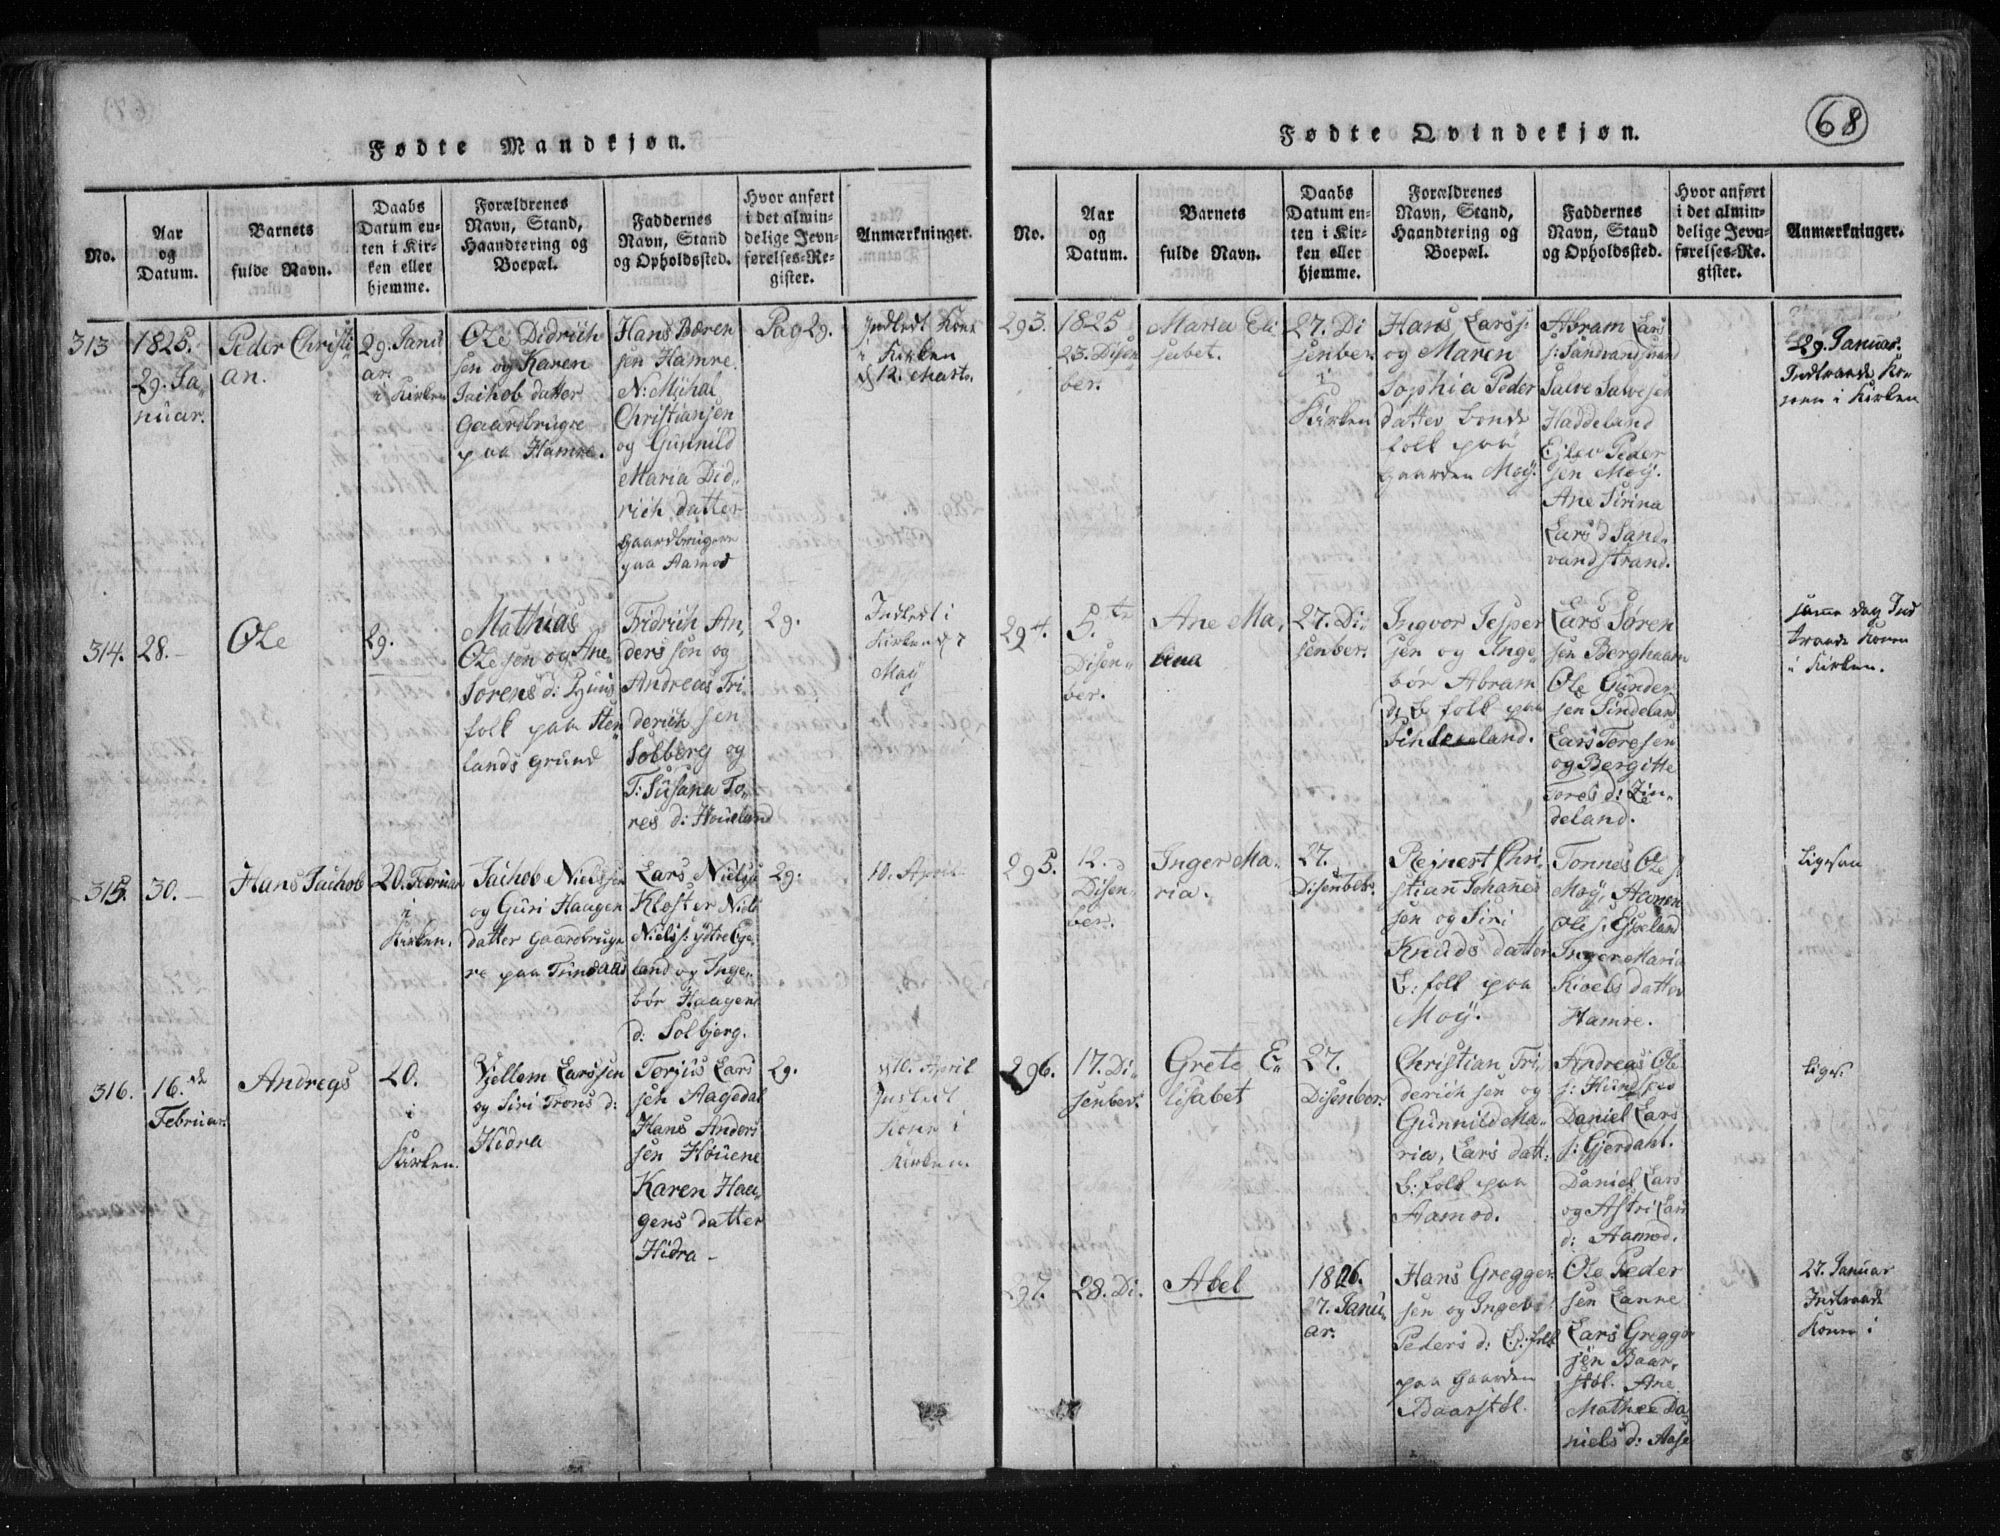 68
Fødte Mandkjøn.
No.
Aar
og
Datum.
Barnets
fulde Navn.
Daabs
Datum en-
ten i Kir-
ken eller
hjemme.
Forældrenes
Navn, Stand,
Haandtering og
Boepæl.
Faddernes
Navn, Stand
og Opholdssted.
Hvor anført
i det almin-
delige Jevn-
førelses-Re-
gister.
Anmærkninger.
313
1825.
29. Ja-
nuar.
Peder Christi
an.
29. Janu
ar.
i Kirken
Ole Didrich
sen og Karen
Jachob datter
Gaardbrugre
paa Hamre.
Hans Bæren
sen Hamre.
N: Mihal
Christiansen
og Gunnild
Maria Did-
rich datter
Gaardbrugere
paa Aamod
Pag 29.
Indledt Kone
i Kirken
d 12. Marts.
314.
28.
Ole
29.
Mathias
Olesen og Ane
Sørens d:
folk paa Sten
lands grund
Fridrich An,
ders sen og
Andreas Fri
derich sen
Solberg og
T: Susana To,
res d: Houeland
29.
Indledt i
Kirken d 7
May
315.
30.
Hans Jachob
20. Febriar
i
Kirken.
Jachob Nielssen
og Guri Haagen
datter Gaardbruge
re paa Trindaas
Lars Niels
Kloster Niels
Niels s: ystrebye,
land og Inge,
bør Haagens
d: Solbjerg.
29.
10. April
316.
16.de
Februar
Andreas
20.
i
Kirken.
Vjellem Larssen
og Siri Trons d:
Hidra
Torjus Lars
sen Aagedal
Hans Anders
sen Houene
Karen Haa,
gens datter
Hidra
29.
d 10. April
Indledt
Kone i
Kirken.
Fødte Qvindekjøn.
No.
Aar
og
Datum.
Barnets
fulde Navn.
Daabs
Datum en-
ten i Kir-
ken eller
hjemme.
Forældrenes
Navn, Stand,
Haandtering og
Boepæl.
Faddernes
Navn, Stand
og Opholdssted.
Hvor anført
i det almin-
delige Jevn-
førelses-Re-
gister.
Anmærkninger.
293.
1825
23. Disen
ber.
Maria Eli
sabet.
27. Di
senber.
i
Kirken
Hans Lars s:
og Maren
Sophia Peder
datter bonde
folk paa
gaarden Moÿ.
Abram Lars
s: Sandvandstrand
Salve Salvesen
Haddeland
Ejlev Peder
sen Moÿ.
Ane Sirina
Lars d Sand,
vandstrand.
29. Januar.
Indtraade Ko-
nen i Kirken
294.
5.te
Disen-
ber.
Ane Ma,
lena
27. Di,
senber.
Ingvor Jesper
sen og Inge,
bør Abram
d: b: folk paa
Sindeland.
Lars Søren
sen Berghaam
Ole Gunder
sen Sindeland
Lars Toresen
og Bergitte
Tores d: Zin,
deland.
samme dag Ind
traade Konen
i Kirken.
295.
12.
Disen-
ber.
Inger Ma,
ria.
27.
Disenber.
Rejnert Chri
stian Johannes
sen og Siri
Knuds datter
b: folk paa
Moÿ.
Tønnes Ole s:
Moÿ,
Ole s: Espeland
Inger Maria
Kioels datter
Hamre.
Ligesaa
296.
17. Di,
senber.
Grete E,
lisabet
27.
Disenber.
Christian Fri
derich sen og
Gunnild Ma,
ria, Lars datt:
b: folk paa
Aamod.
Andreas Ole
s:
Daniel Lars
s: Gjerdahl.
Daniel Lars
og Astri Lars
d: Aamod.
Liges:
297.
28. Di.
Abel
1826.
27. Janu
ar.
Hans Gregger
sen og Ingeb:
Peders d: b: folk
paa Gaarden
Baarstøl.
Ole Peder
sen Lanne
Lars Gregger
sen Baar,
støl. Ane
Mathea Da
niels d: Aase
27. Januar
Indtraade
Konen i